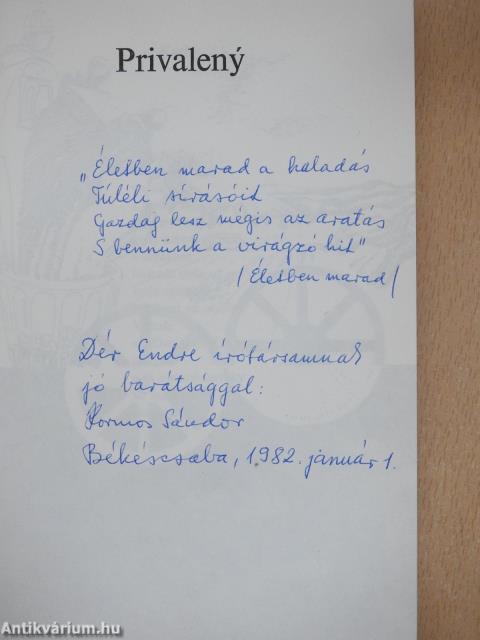 Privalený
„Életben marad a haladás
Túléli sírásóit
Gazdag lesz mégis az aratás
S bennünk a virágzó hit"
/Életben marad/
Dér Endre írótársamnak
jó barátsággal:
Kormos Sándor
Békéscsaba, 1982. január 1.
Antikvárium.hu